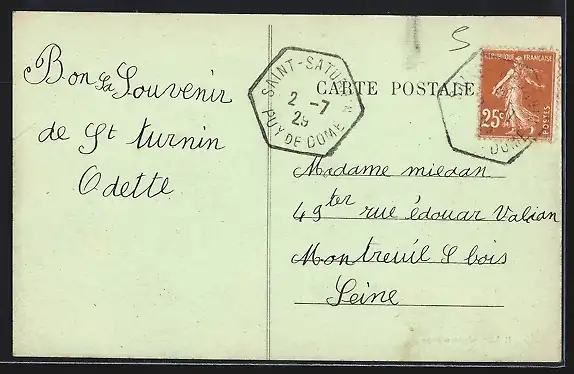 Bon Souvenir
de St turnin
Odette
SAINT-SATUR
2 -7
29
PUY DE DOME
CARTE POSTALE
S
REPUBLIQUE FRANÇAISE
25c
POSTES
DOME
Madame miedan
49ter rue édouar Valian
Montreuil S bois
Seine